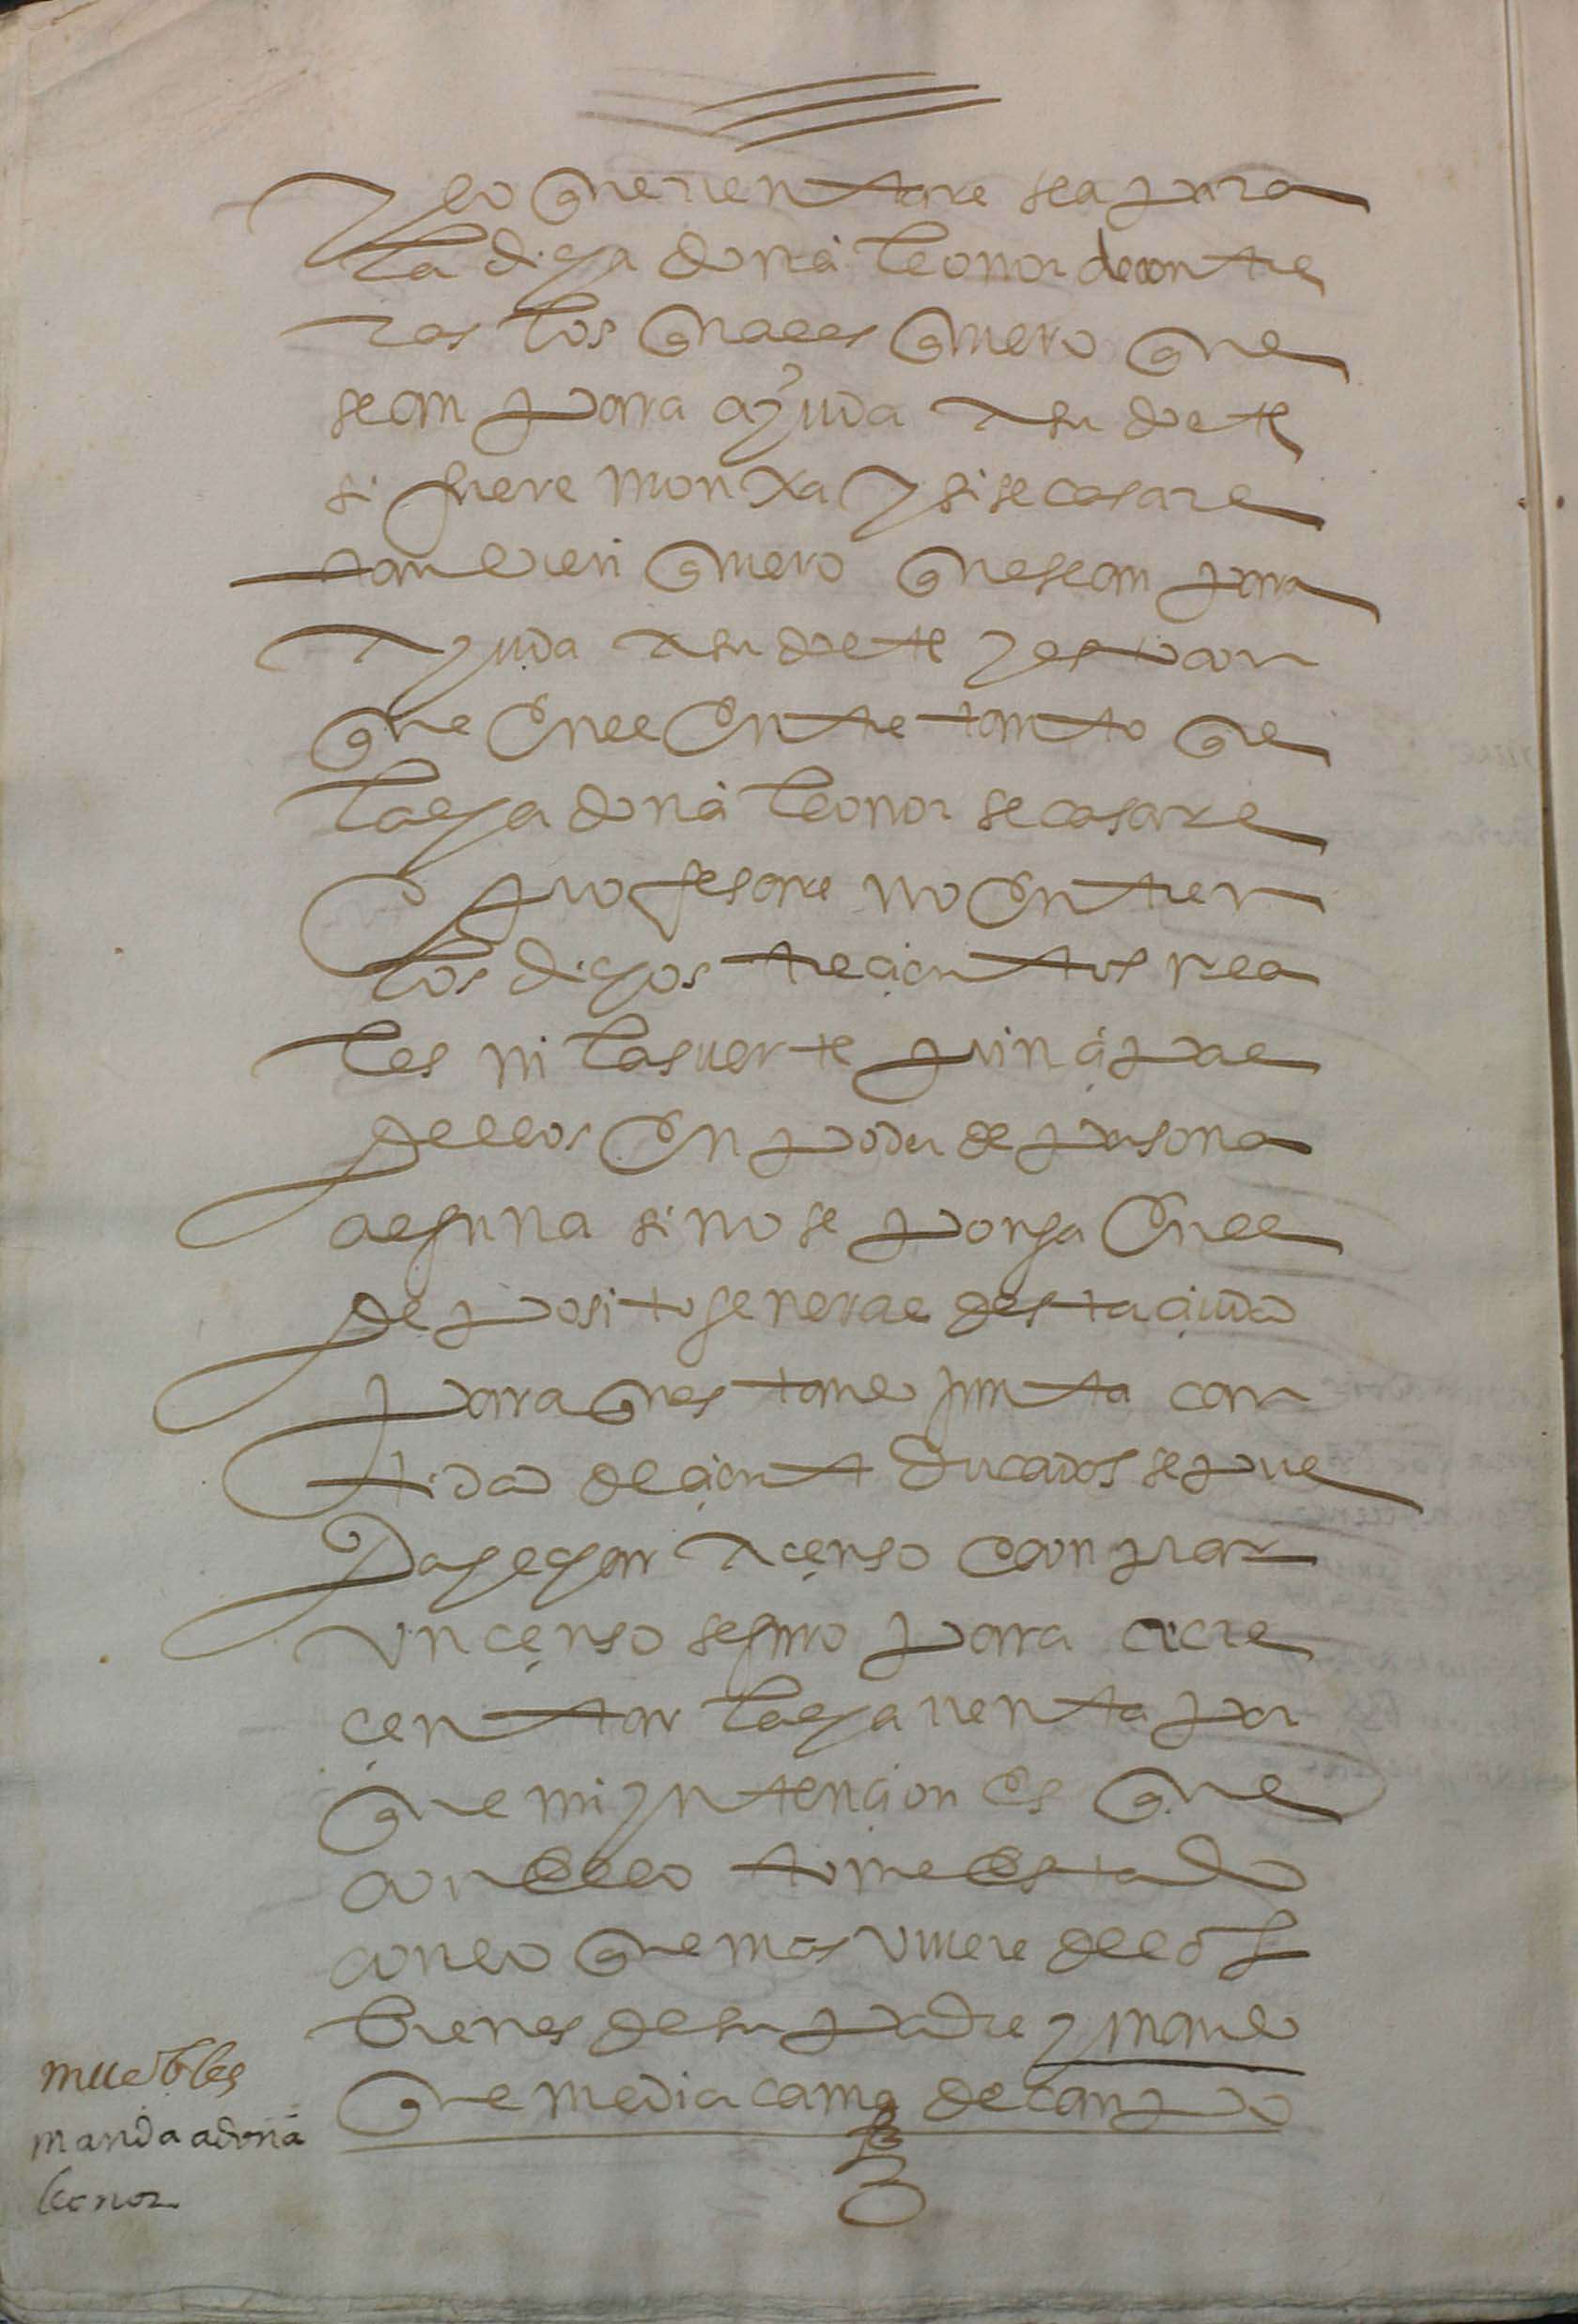 y lo que rrentare sea para
la dicha doña leonor de contre
ras los quales quiero que
sean para ayuda a su dote
si fuere monxa y si se casare
tanbien quiero que sean para
ayuda a su dote y es con
que en el entre tanto que
la dicha doña leonor se casare
o profesare no entren
los dichos treçientos rrea
les ni la suerte prinçipal
dellos en poder de persona
alguna sino se ponga en el
deposito general desta çiudad
para que estando junta can
tidad de çient ducados se pue
da hechar a çenso e conprar
un çenso seguro para acre
çentar la dicha rrenta por
que mi yntençion es que
con ello tome estado
con lo que mas uviere de los
bienes de su padre y mando
que media cama de canpo
muebles
manda a doña
leonor